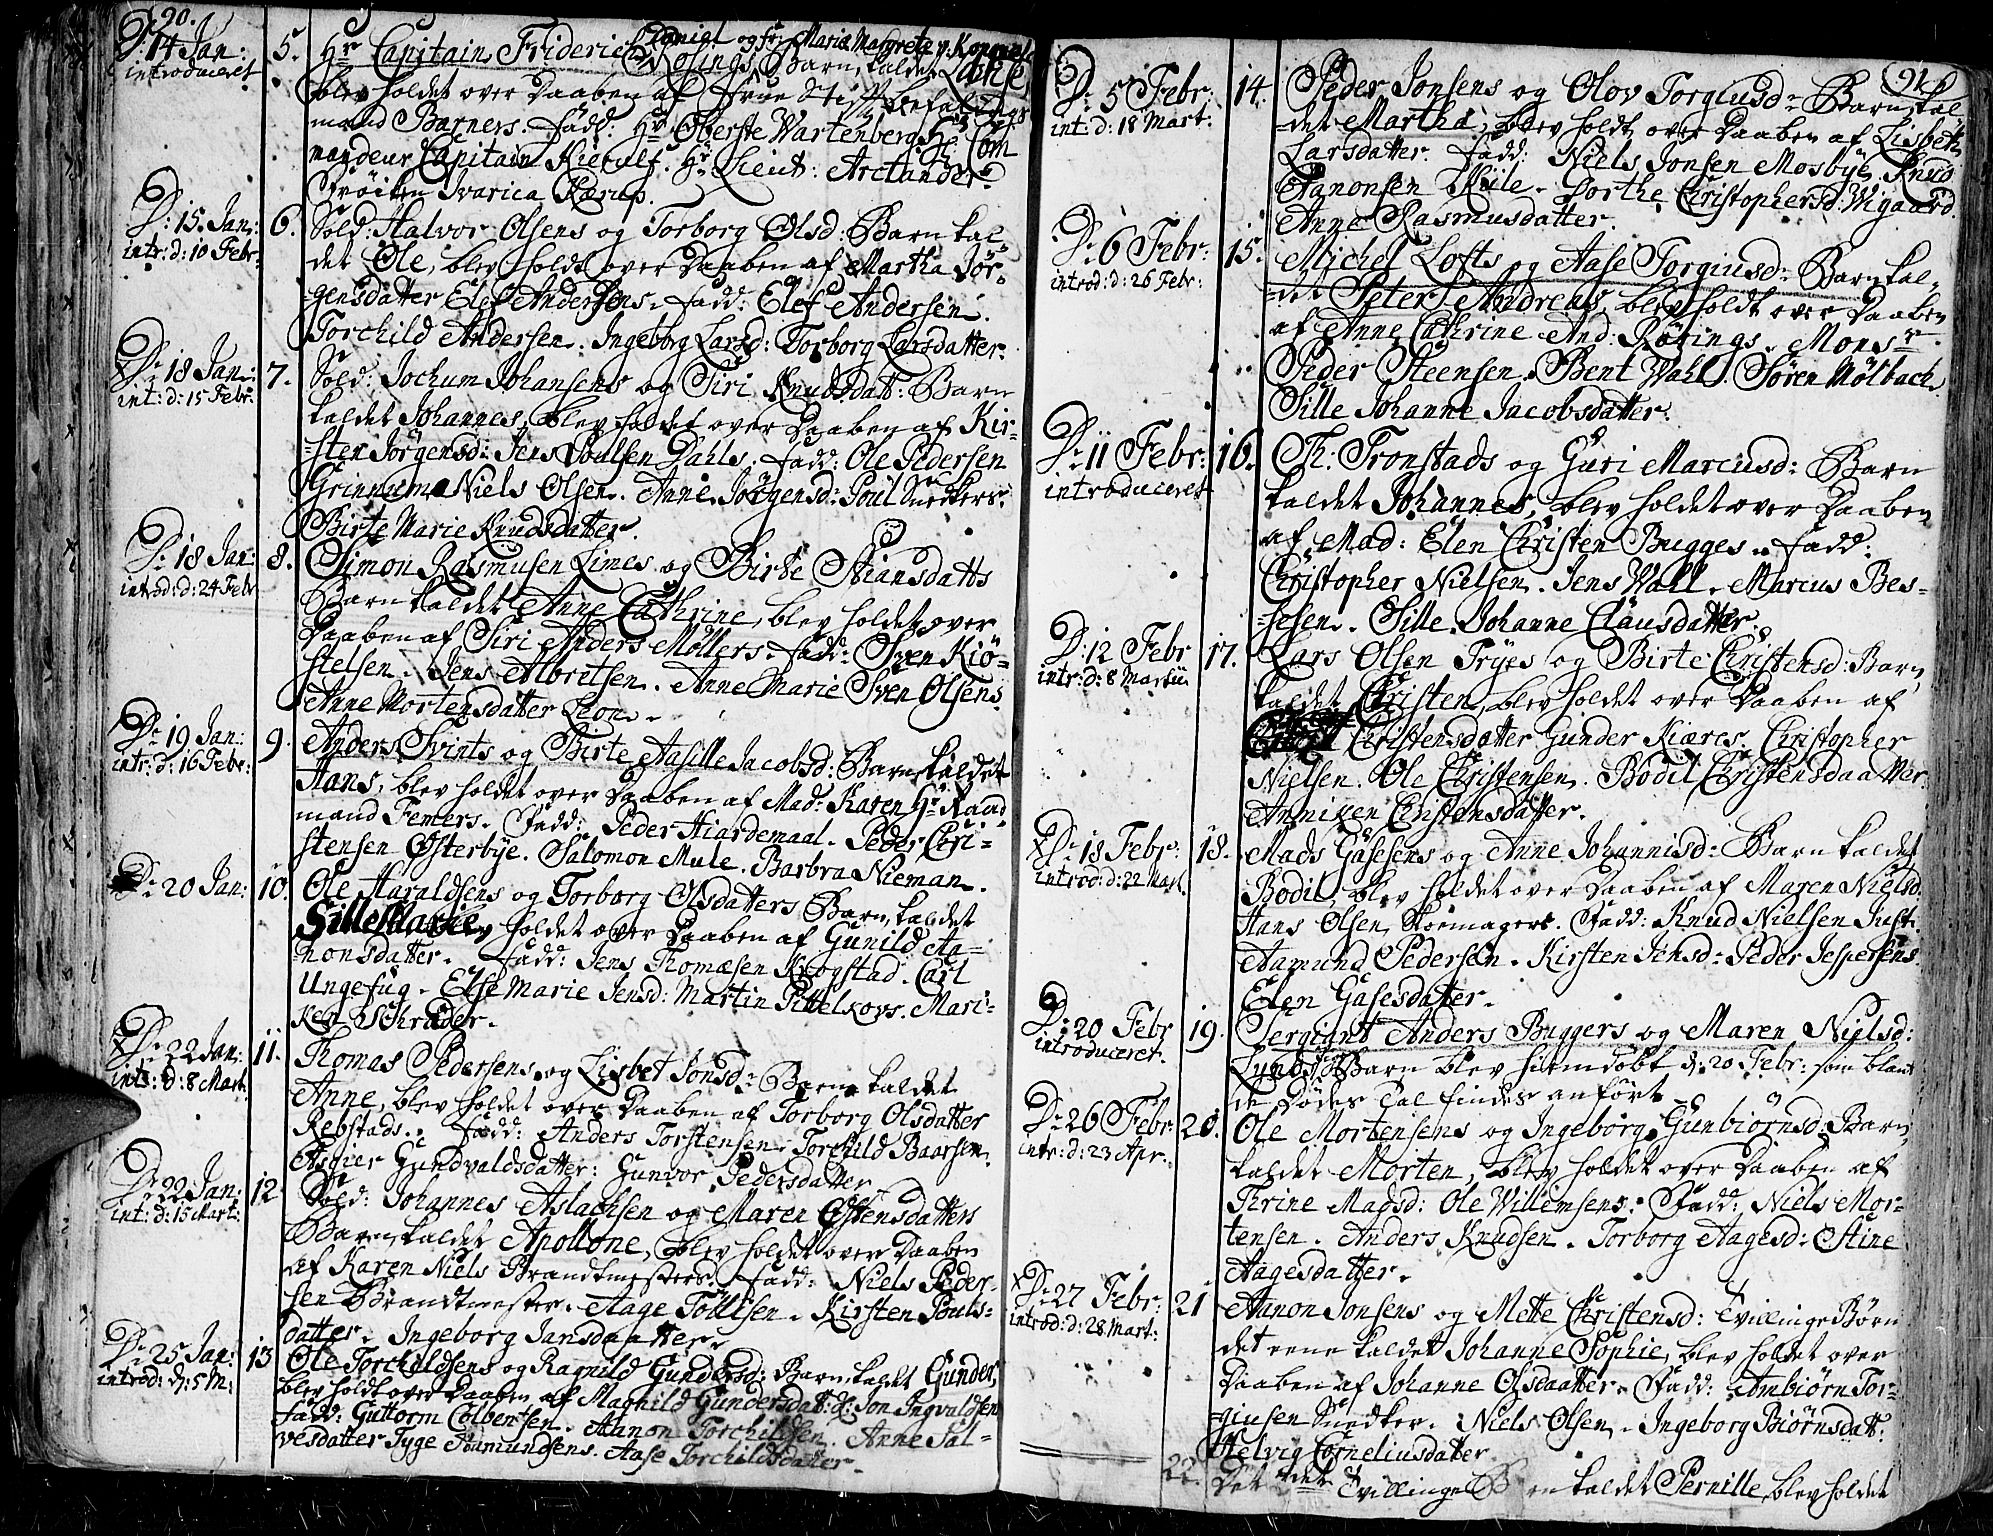 90.
D: 14 Jan:
introduceret
5.
Daniel og fr: Maria Margreta v: Koppel
Hr Capitain Friderich Rosings Barn, kaldet
blev holdet over Daaben af Frue Stift Befal
mand Barners. Fadd: Hr Oberste Wartenberg. Hr Com
mandeur Capitain Kierulf. Hr Lieut: Arctander.
Frøiken Ivarica Kærup.
D: 15. Jan:
intr: d: 10 Febr:
6.
Sold: Halvor Olsens og Torborg Olsd: Barn kal-
det Ole, blev holdt over Daaben af Martha Jør-
gensdatter Elef Andersens. Fadd: Elef Andersen.
Torchild Andersen. Ingeborg Larsd: Torborg Larsdatter.
D: 18 Jan:
int: d: 15 Febr:
7.
Sold: Jochum Johansens og Siri Knudsdatt: Barn
kaldet Johannes, blev holdet over Daaben af Kir-
sten Jörgensd: Jens Poulsen Dahls. Fadd: Ole Pedersen
Grinnum. Niels Olsen. Anne Jörgensd: Poul Snedkers.
Birte Marie Knudsdatter.
D: 18 Jan:
introd: d: 24 Febr
8.
Simon Rasmusen Limes og Birte Stiansdatts
Barn kaldet Anne Cathrine, blev holdet over
Daaben af Siri Anders Møllers. Fadd: Sven Kiö-
stelsen. Jens Albretsen. Anne Marie Sven Olsens.
Anne Mortensdatter Leon.
D: 19 Jan:
intr: d: 16 Febr:
9.
Anders Svints og Birte Aasille Jacobsd: Barn kaldet
Hans, blev holdet over Daaben af Mad: Karen Hr Raad
mand Femers. Fadd: Peder Hiardemaal. Peder Chri-
stensen Østerbye. Salomon Mule. Barbra Nieman.
D: 20 Jan:
10.
Ole Haraldsens og Torborg Olsdatters Barn kaldet
Sille Marie, blev holdet over Daaben af Gunild Aa-
nonsdatter. Fadd: Jens Thomæsen Krogstad. Carl
Ungefug. Else Marie Jensd: Martin Pittelkovs. Mari-
ken Schrøder.
D: 22 Jan:
intr: d: 8 Mart.
11.
Thomas Pedersens og Lisbet Jonsd: Barn kaldet
Anne, blev holdet over Daaben af Torborg Olsdatter
Rebstads. Fadd: Anders Torstensen. Torchild Baarsen.
Asgier Gundvaldsdatter: Gunvor Pedersdatter
D: 22 Jan:
int: d: 15 Mart:
12.
Sold: Johannes Aslachsen og Maren Östensdatters
Barn kaldet Apollone, blev holdet over Daaben
af Karen Niels Brandtmesters. Fadd: Niels Peder-
sen Brandtmester. Aage Tollisen. Kirsten Pouls-
datter. Ingeborg Jansdaatter.
D: 25 Jan:
introd: d: 5 M:
13
Ole Torchildsens og Ragnild Gundersd: Barn kaldt Gunder,
blev holdt over Daaben af Magnild Gundersdatt: Jon Ingvaldsen
Fadd: Guttorm Colbensen. Aanon Torchildsen. Anne Sal-
vesdatter Tyge Aamundsens. Aase Torchildsdatter.
91.
D: 5 Febr:
int: d: 18 Mart:
14.
Peder Jonsens og Olov Torgiusd: Barn kal-
det Martha, blev holdt over Daaben af Lisbeth
Larsdatter. Fadd: Niels Jonsen Mosbye. Knud
Aanonsen Kiile. Dorthe Christophersd: Wigaard.
Anne Rasmusdatter.
D: 6 Febr:
introd: d: 26 Febr:
15.
Michel Lofts og Aase Torgiusd: Barn kal-
det Peter Andreas, blev holdt over Daaben
af Anne Cathrine And. Rörings. Monsr.
Peder Steensen. Bent Wahl. Sören Mölbach.
Sille Johanne Jacobsdatter.
D: 11 Febr:
introduceret
16.
Th: Tronstads og Guri Marcusd: Barn
kaldet Johannes, blev holdet over Daaben
af Mad: Elen Christen Bugges. Fadd:
Christopher Nielsen. Jens Wall. Marcus Bes-
sesen. Sille Johanne Clausdatter.
D: 12 Febr
intr: d: 8 Martii
17.
Lars Olsen Tryes og Birte Christensd: Barn
kaldet Christen, blev holdet over Daaben af
Christensdatter Gunder Kiæres. Christopher
Nielsen. Ole Christensen. Bodil Christensdaatter.
Anniken Christensdatter.
D: 18 Febr:
introd: d: 22 Mart.
18.
Mads Gasesens og Anne Johannisd: Barn kaldet
Bodil, blev holdet over Daaben af Maren Nielsd:
Hans Olsen Skomagers. Fadd: Knud Nielsen Just:
Aamund Pedersen. Kirsten Jensd: Peder Jespersens
Elen Gasesdatter.
D: 20 Febr
introduceret.
19.
Sergiant Anders Buggers og Maren Nielsd:
Lunds Barn blev hiemdöbt d: 20 Febr: som blant
de Dödes Tal findes anfört.
D: 26 Febr:
intr: d: 23 Apr.
20.
Ole Mortensens og Ingeborg Gunbiörnsd: Barn
kaldet Morten, blev holdet over Daaben af
Thrine Madsd: Ole Willemsens. Fadd: Niels Mor-
tensen. Anders Knudsen. Torborg Aagesd: Stine
Aagesdatter.
D: 27 Febr:
introd: d: 28 Mart:
21
Aanon Jonsens og Mette Christensd: Tvillinge Börn
det eene kaldet Johanne Sophie, blev holdet over
Daaben af Johanne Olsdaatter. Fadd: Ambiørn Tor-
giusen Snedker. Niels Olsen. Ingeborg Biørnsdatt:
Helvig Corneliusdatter
22.
Det 2det Tvillinge B en kaldet Pernille, blev holdet